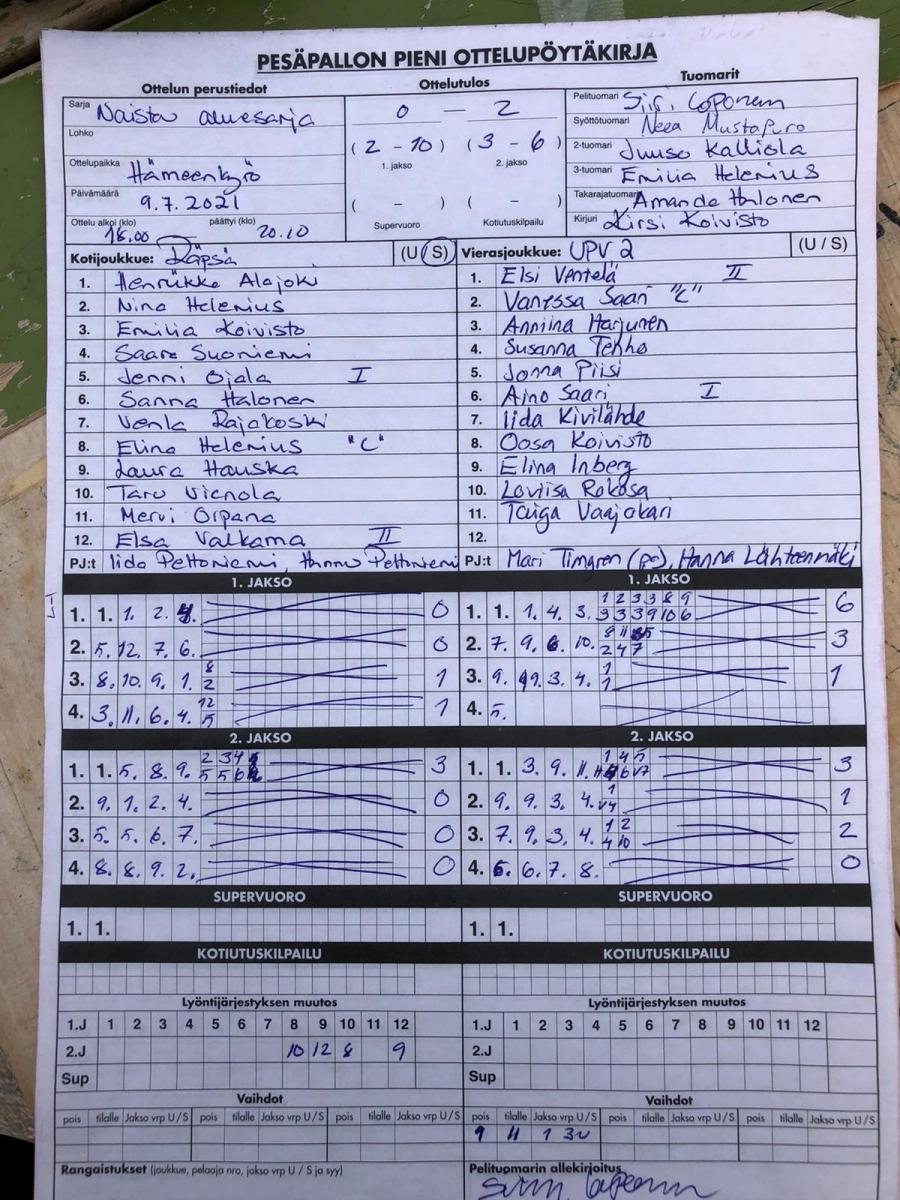 PESÄPALLON PIENI OTTELUPÖYTÄKIRJA
Ottelun perustiedot
Sarja Naisten aluesarja
Lohko
Ottelupaikka Hämeenkyrö
Päivämäärä 9.7.2021
Ottelu alkoi (klo) 18.00 päättyi (klo) 20.10
Ottelutulos
0 – 2
(2 - 10) (3 - 6)
1. jakso 2. jakso
( - ) ( - )
Supervuoro Kotiutuskilpailu
Tuomarit
Pelituomari
Syöttötuomari Neea Mustapuro
2-tuomari Juuso Kalliola
3-tuomari Emilia Helenius
Takarajatuomari Amanda Halonen
Kirjuri Kirsi Koivisto
Kotijoukkue: Räpsä (U / S)
1. Henriikka Alajoki
2. Nina Helenius
3. Emilia Koivisto
4. Saara Suoniemi
5. Jenni Ojala I
6. Sanna Halonen
7. Venla Rajakoski
8. Elina Helenius "C"
9. Laura Hauska
10. Taru Vienola
11. Mervi Orpana
12. Elsa Valkama II
PJ:t Iida Peltoniemi, Hannu Peltoniemi
Vierasjoukkue: UPV 2 (U / S)
1. Elsi Ventelä II
2. Vanessa Saari "C"
3. Anniina Harjunen
4. Susanna Tenho
5. Jonna Piisi
6. Aino Saari I
7. Iida Kivilähde
8. Oosa Koivisto
9. Elina Inberg
10. Loviisa Rokosa
11. Taiga Vaajakari
12.
PJ:t Mari Timgren (pj), Hanna Lähteenmäki
1. JAKSO
1. 1. 1. 2. 4. 0
2. 5. 12. 7. 6. 0
3. 8. 10. 9. 1. 8 2 1
4. 3. 11. 6. 4. 12 5 1
1. JAKSO
1. 1. 1. 4. 3. 1 2 3 3 8 9
3 3 3 9 10 6 6
2. 7. 9. 6. 10. 8 11
2 4 7 3
3. 9. 3. 4. 1 1 1
4. 5.
2. JAKSO
1. 1. 5. 8. 9. 2 3 4
5 5 6 3
2. 9. 1. 2. 4. 0
3. 5. 5. 6. 7. 0
4. 8. 8. 9. 2. 0
2. JAKSO
1. 1. 3. 9. 11. 1 4 5
3
2. 9. 9. 3. 4. 1
1
3. 7. 9. 3. 4. 1 2
4 10 2
4. 6. 6. 7. 8. 0
SUPERVUORO
1. 1.
SUPERVUORO
1. 1.
KOTIUTUSKILPAILU
KOTIUTUSKILPAILU
Lyöntijärjestyksen muutos
1.J 1 2 3 4 5 6 7 8 9 10 11 12
2.J 10 12 8 9
Sup
Lyöntijärjestyksen muutos
1.J 1 2 3 4 5 6 7 8 9 10 11 12
2.J
Sup
Vaihdot
pois tilalle Jakso vrp U / S pois tilalle Jakso vrp U / S pois tilalle Jakso vrp U / S
Vaihdot
pois tilalle Jakso vrp U / S pois tilalle Jakso vrp U / S pois tilalle Jakso vrp U / S
9 11 1 3U
Rangaistukset (joukkue, pelaaja nro, jakso vrp U / S ja syy)
Pelituomarin allekirjoitus